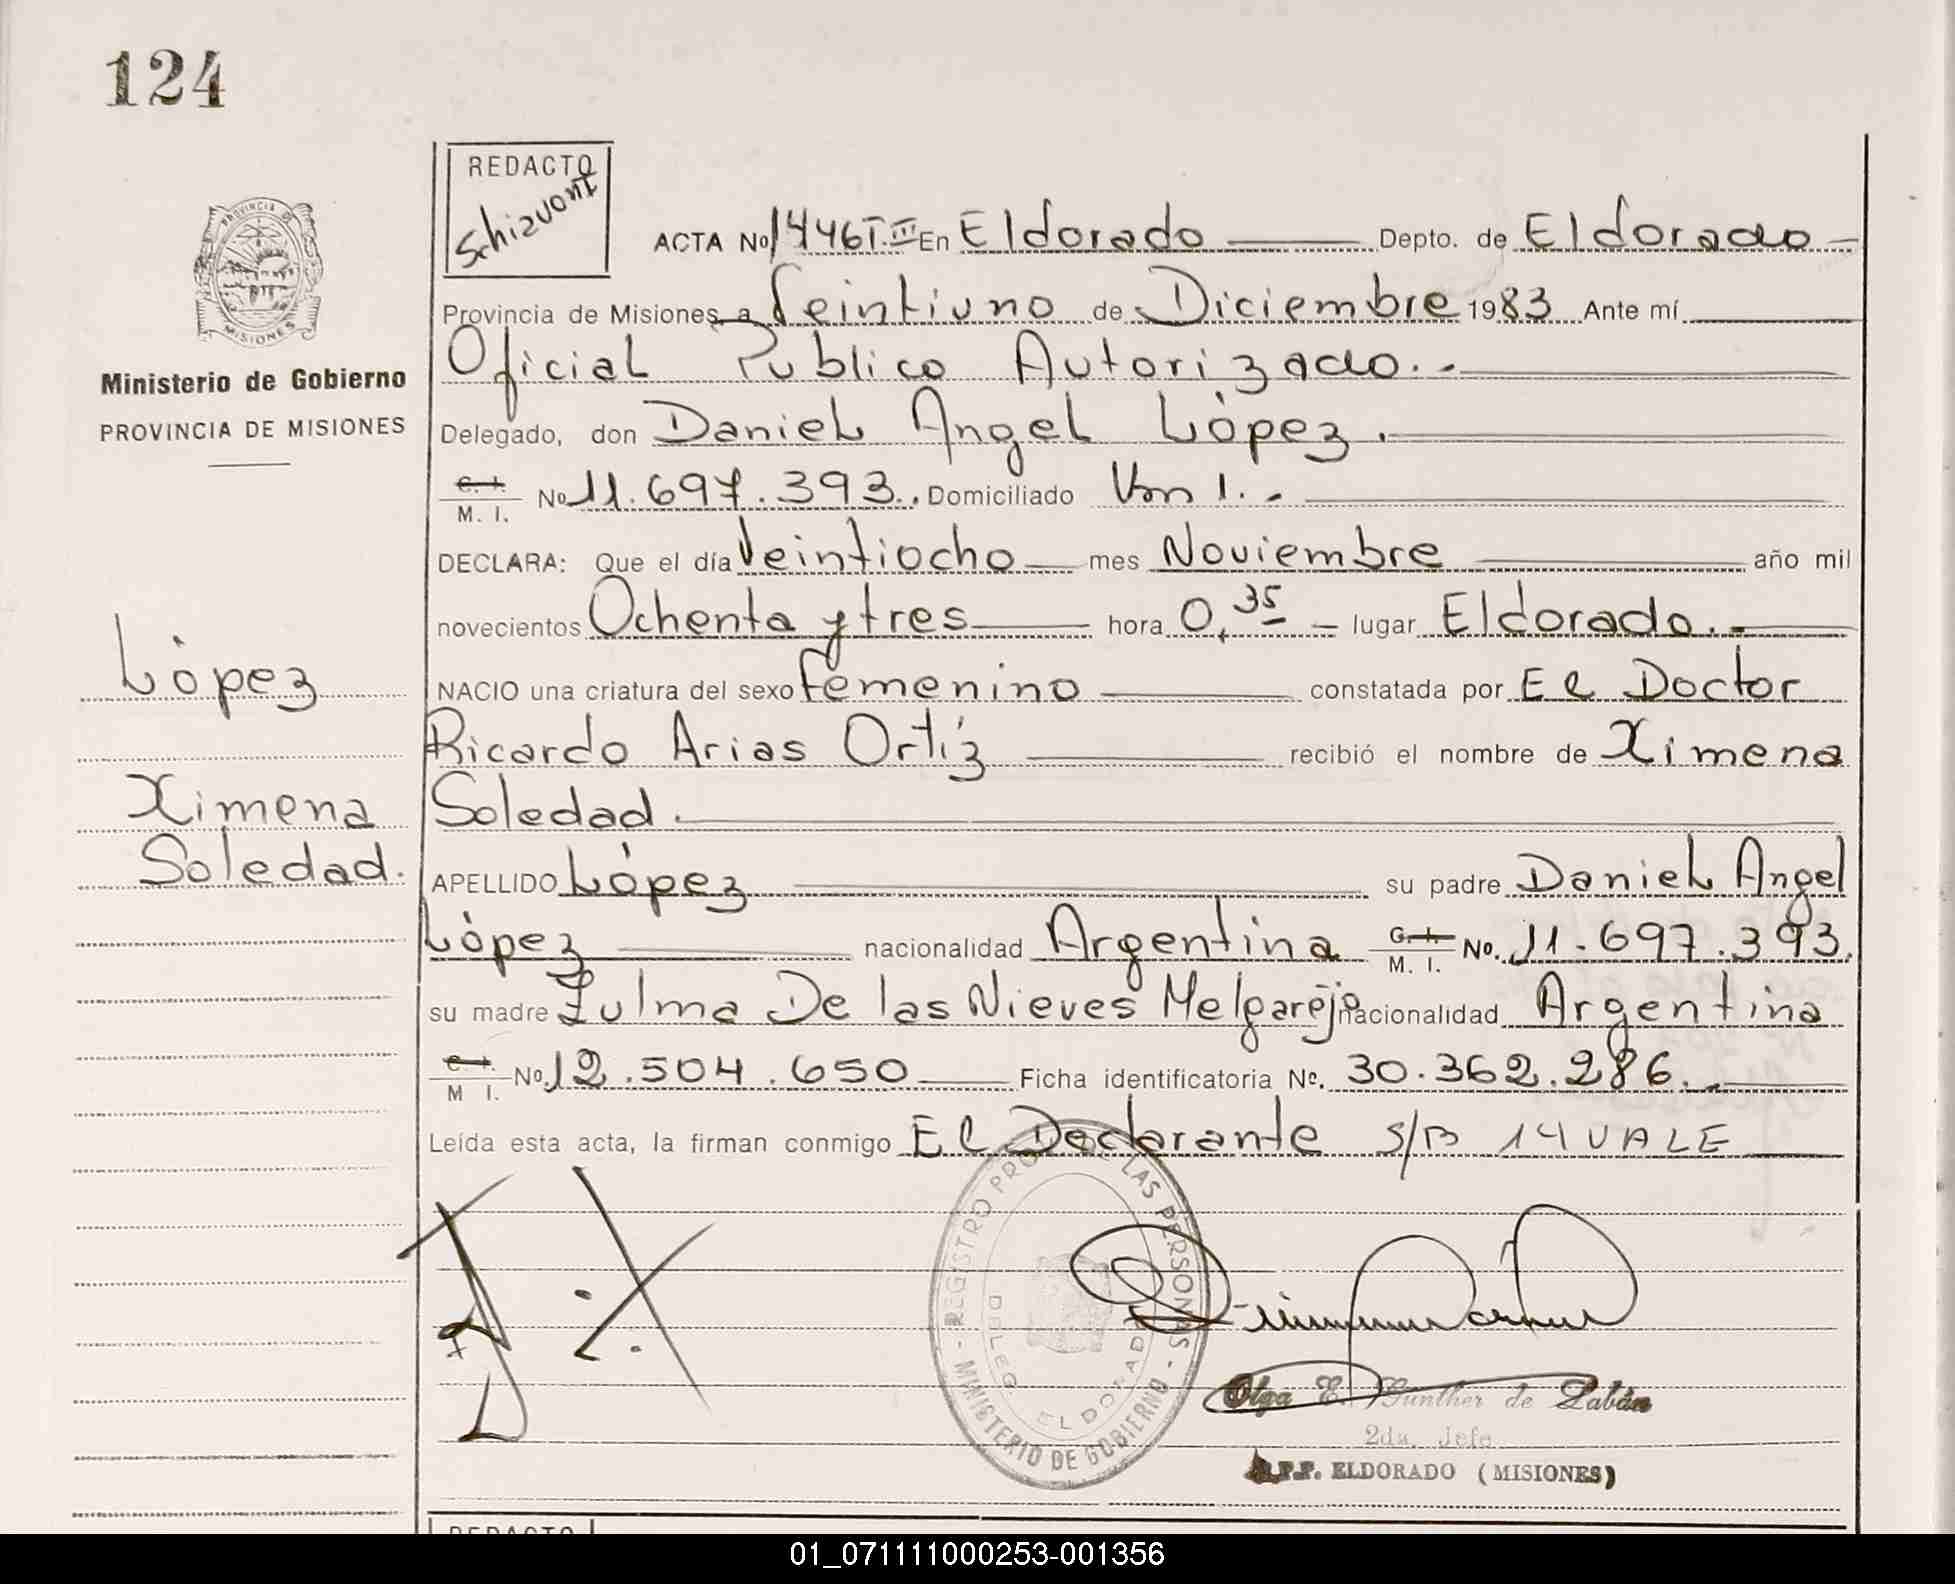 124
REDACTO
Schizvoni
PROVINCIA DE
MISIONES
Ministerio de Gobierno
PROVINCIA DE MISIONES
ACTA No 1446 T. III En Eldorado Depto. de Eldorado
Provincia de Misiones, a Veintiuno de Diciembre 1983 Ante mí
Oficial Publico Autorizado.-
Delegado, don Daniel Angel López.
C. I.
M. I. No 11.697.393. Domiciliado Km 1.-
DECLARA: Que el día Veintiocho mes Noviembre año mil
novecientos Ochenta y tres hora 0,35 lugar Eldorado.-
López
NACIO una criatura del sexo femenino constatada por El Doctor
Ricardo Arias Ortíz recibió el nombre de Ximena
Ximena
Soledad.
Soledad.
APELLIDO López su padre Daniel Angel
López nacionalidad Argentina C. I. M. I. No. 11.697.393.
su madre Zulma De las Nieves Melgarejo nacionalidad Argentina
C. I.
M I. No. 12.504.650 Ficha identificatoria No. 30.362.286.-
Leída esta acta, la firman conmigo El Declarante S/B 14 VALE
REGISTRO PROV. DE LAS PERSONAS
DELEG. ELDORADO
MINISTERIO DE GOBIERNO
Olga E. Gunther de Labán
2da. Jefe
R.P.P. ELDORADO (MISIONES)
REDACTO
01_071111000253-001356